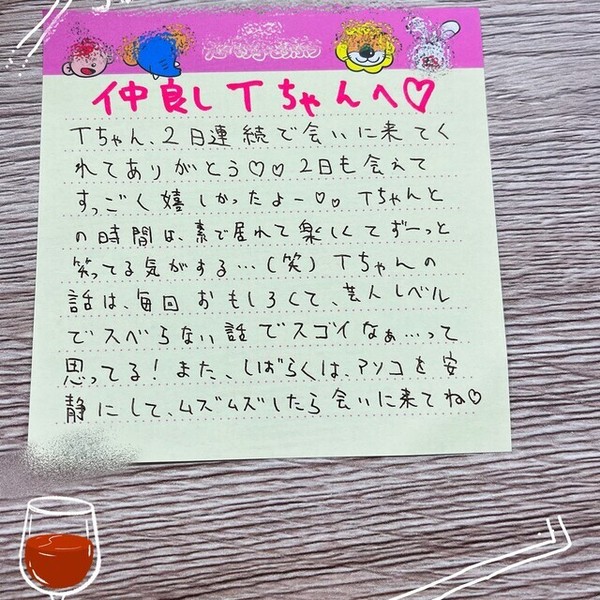 仲良しTちゃんへ♡
Tちゃん、2日連続で会いに来てく
れてありがとう♡♡ 2日も会えて
すっごく嬉しかったよー♡♡ Tちゃんと
の時間は、素で居れて楽しくてずーっと
笑ってる気がする…(笑) Tちゃんの
話は、毎回おもしろくて、芸人レベル
でスベらない話でスゴイなぁ…って
思ってる! また、しばらくは、アソコを安
静にして、ムズムズしたら会いに来てね♡